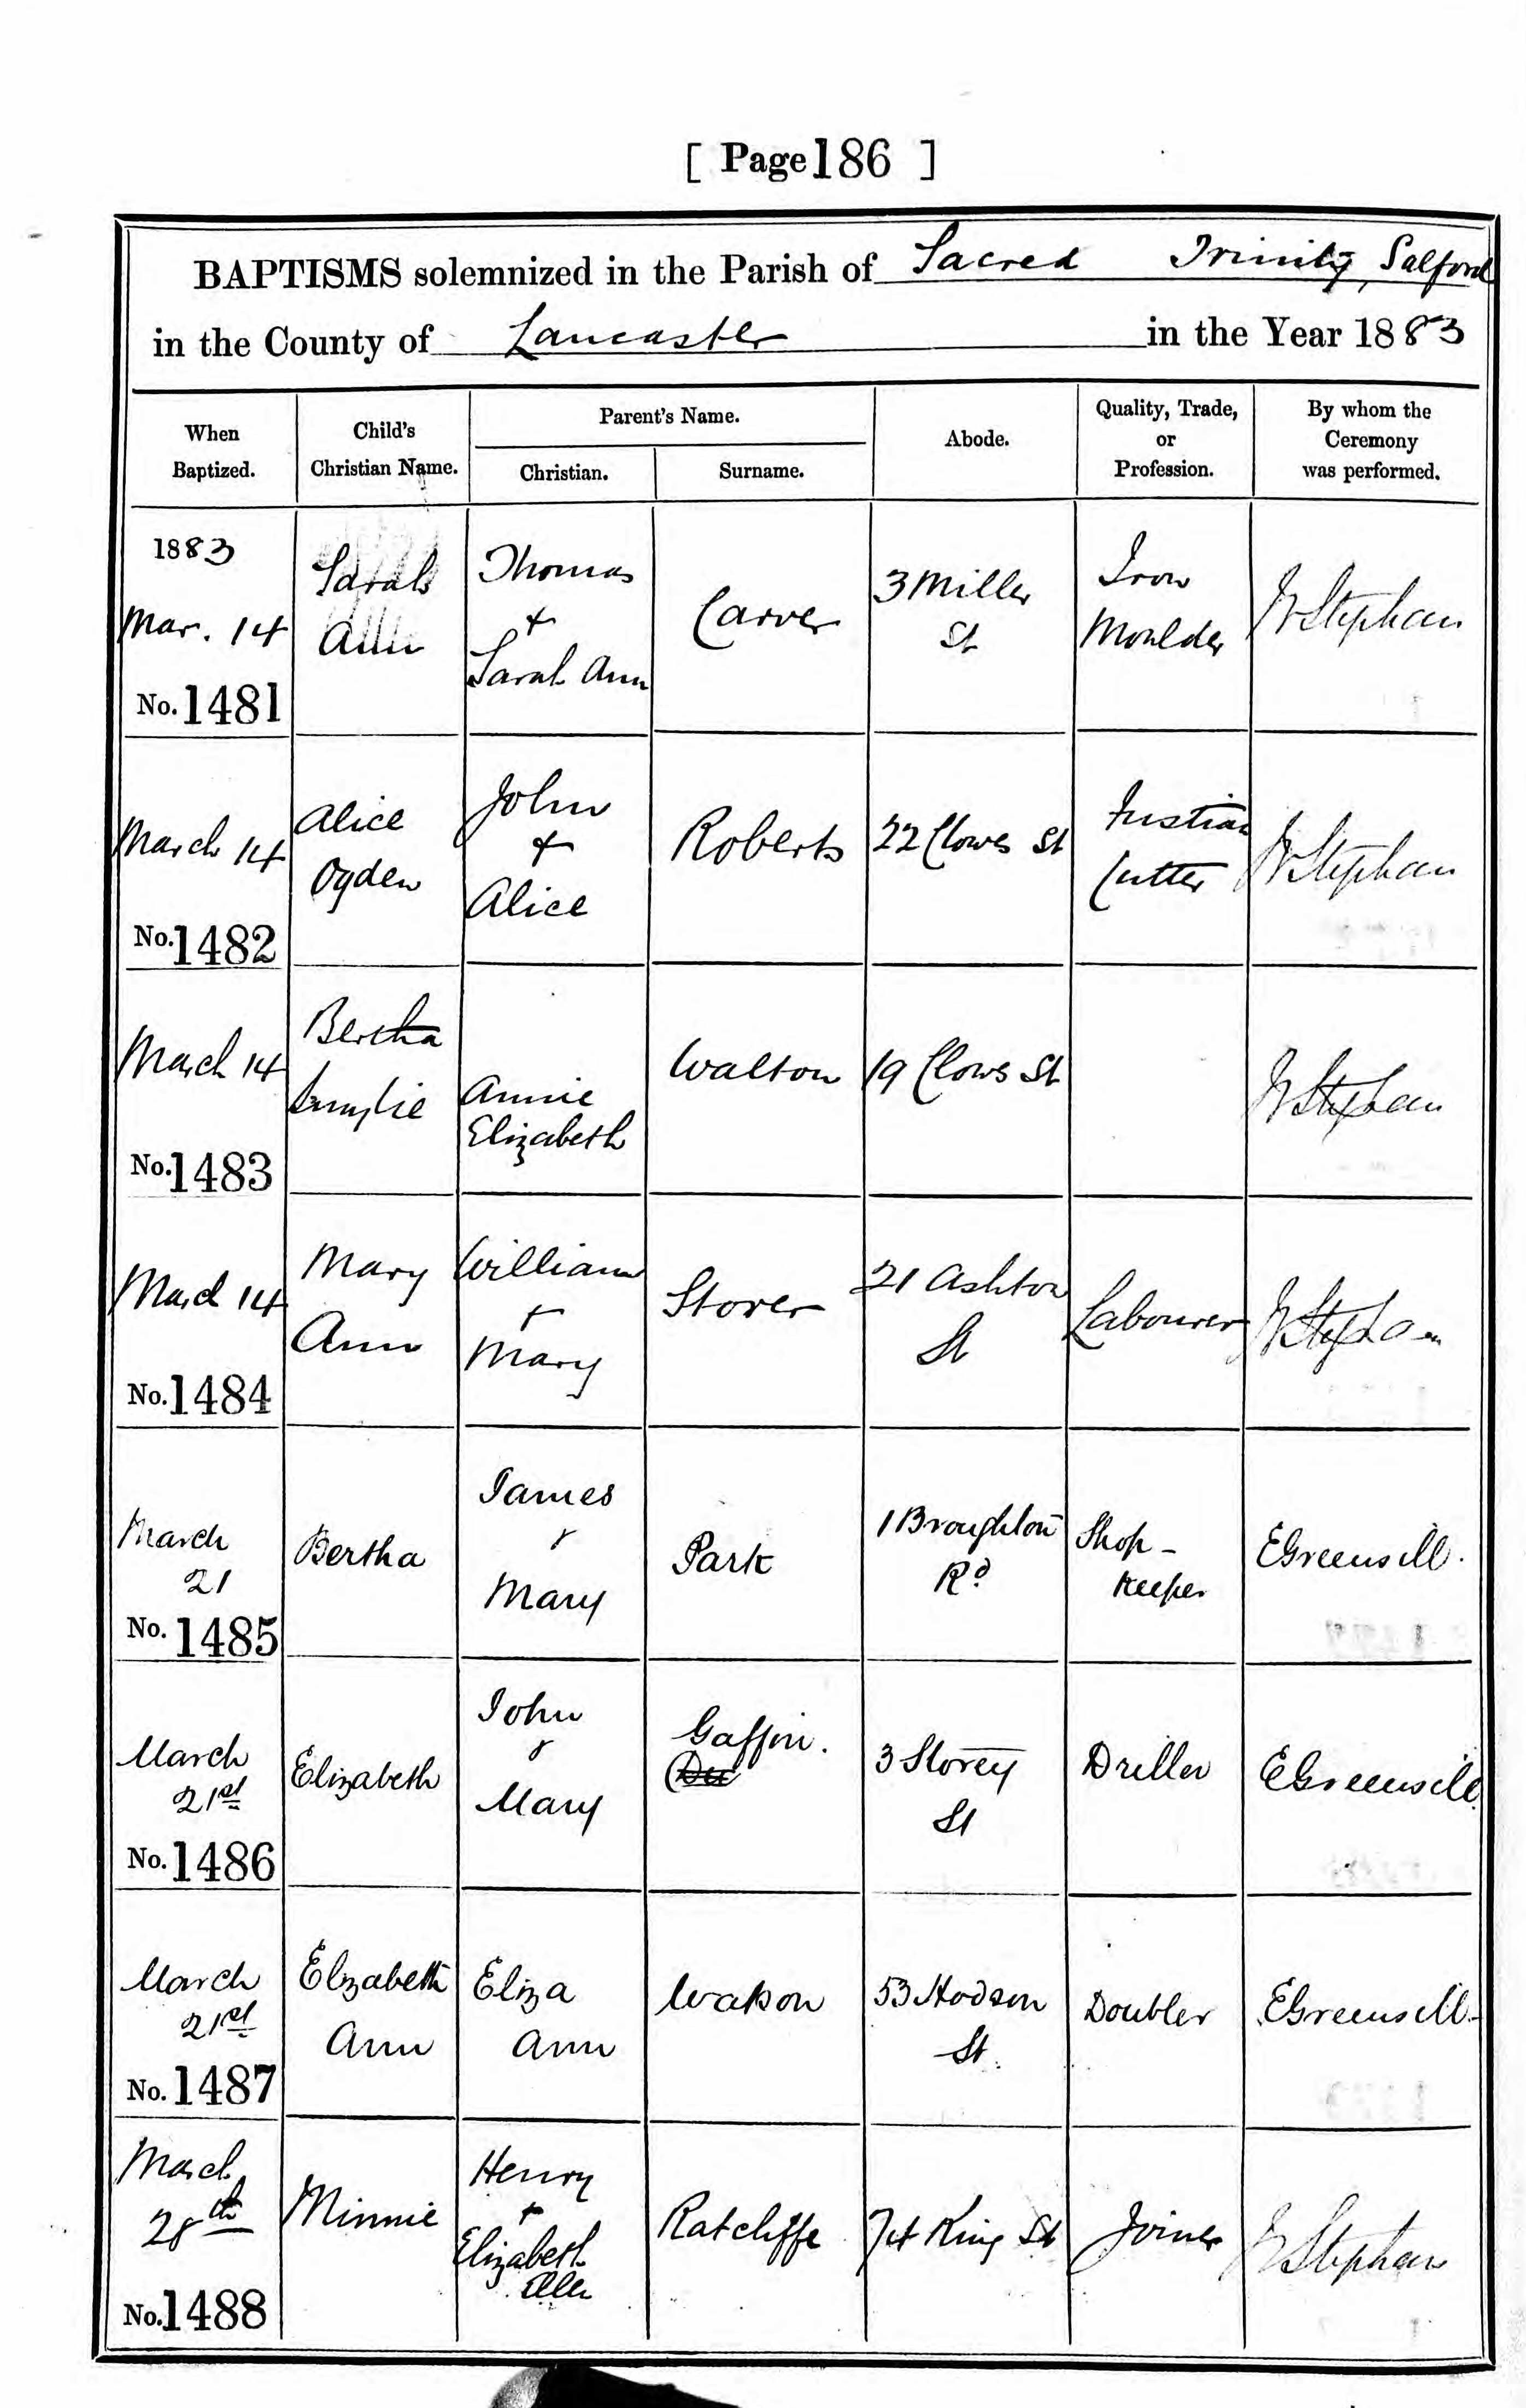 [ Page 186 ]
BAPTISMS solemnized in the Parish of Sacred Trinity, Salford
in the County of Lancaster in the Year 1883
When Baptized.
Child's Christian Name.
Parent's Name.
Christian.
Surname.
Abode.
Quality, Trade, or Profession.
By whom the Ceremony was performed.
1883
Mar. 14
No. 1481
Sarah
Ann
Thomas
+
Sarah Ann
Carver
3 Miller
St
Iron
Moulder
W Stephen
March 14
No. 1482
Alice
Ogden
John
+
Alice
Roberts
22 Clowes St
Fustian
Cutter
W Stephen
March 14
No. 1483
Bertha
Annie
Elizabeth
Walton
19 Clows St
W Stephen
March 14
No. 1484
Mary
Ann
William
+
Mary
Storer
21 Ashton
St
Labourer
W Stephen
March
21
No. 1485
Bertha
James
&
Mary
Park
1 Broughton
Rd
Shop-
keeper
E Greensill.
March
21st
No. 1486
Elizabeth
John
&
Mary
Gaffin.
3 Storey
St
Driller
E Greensill.
March
21st
No. 1487
Elizabeth
Ann
Eliza
Ann
Watson
53 Hodson
St.
Doubler
E Greensill
March
28th
No. 1488
Minnie
Henry
+
Elizabeth
Ellen
Ratcliffe
74 King St
Joiner
W Stephen